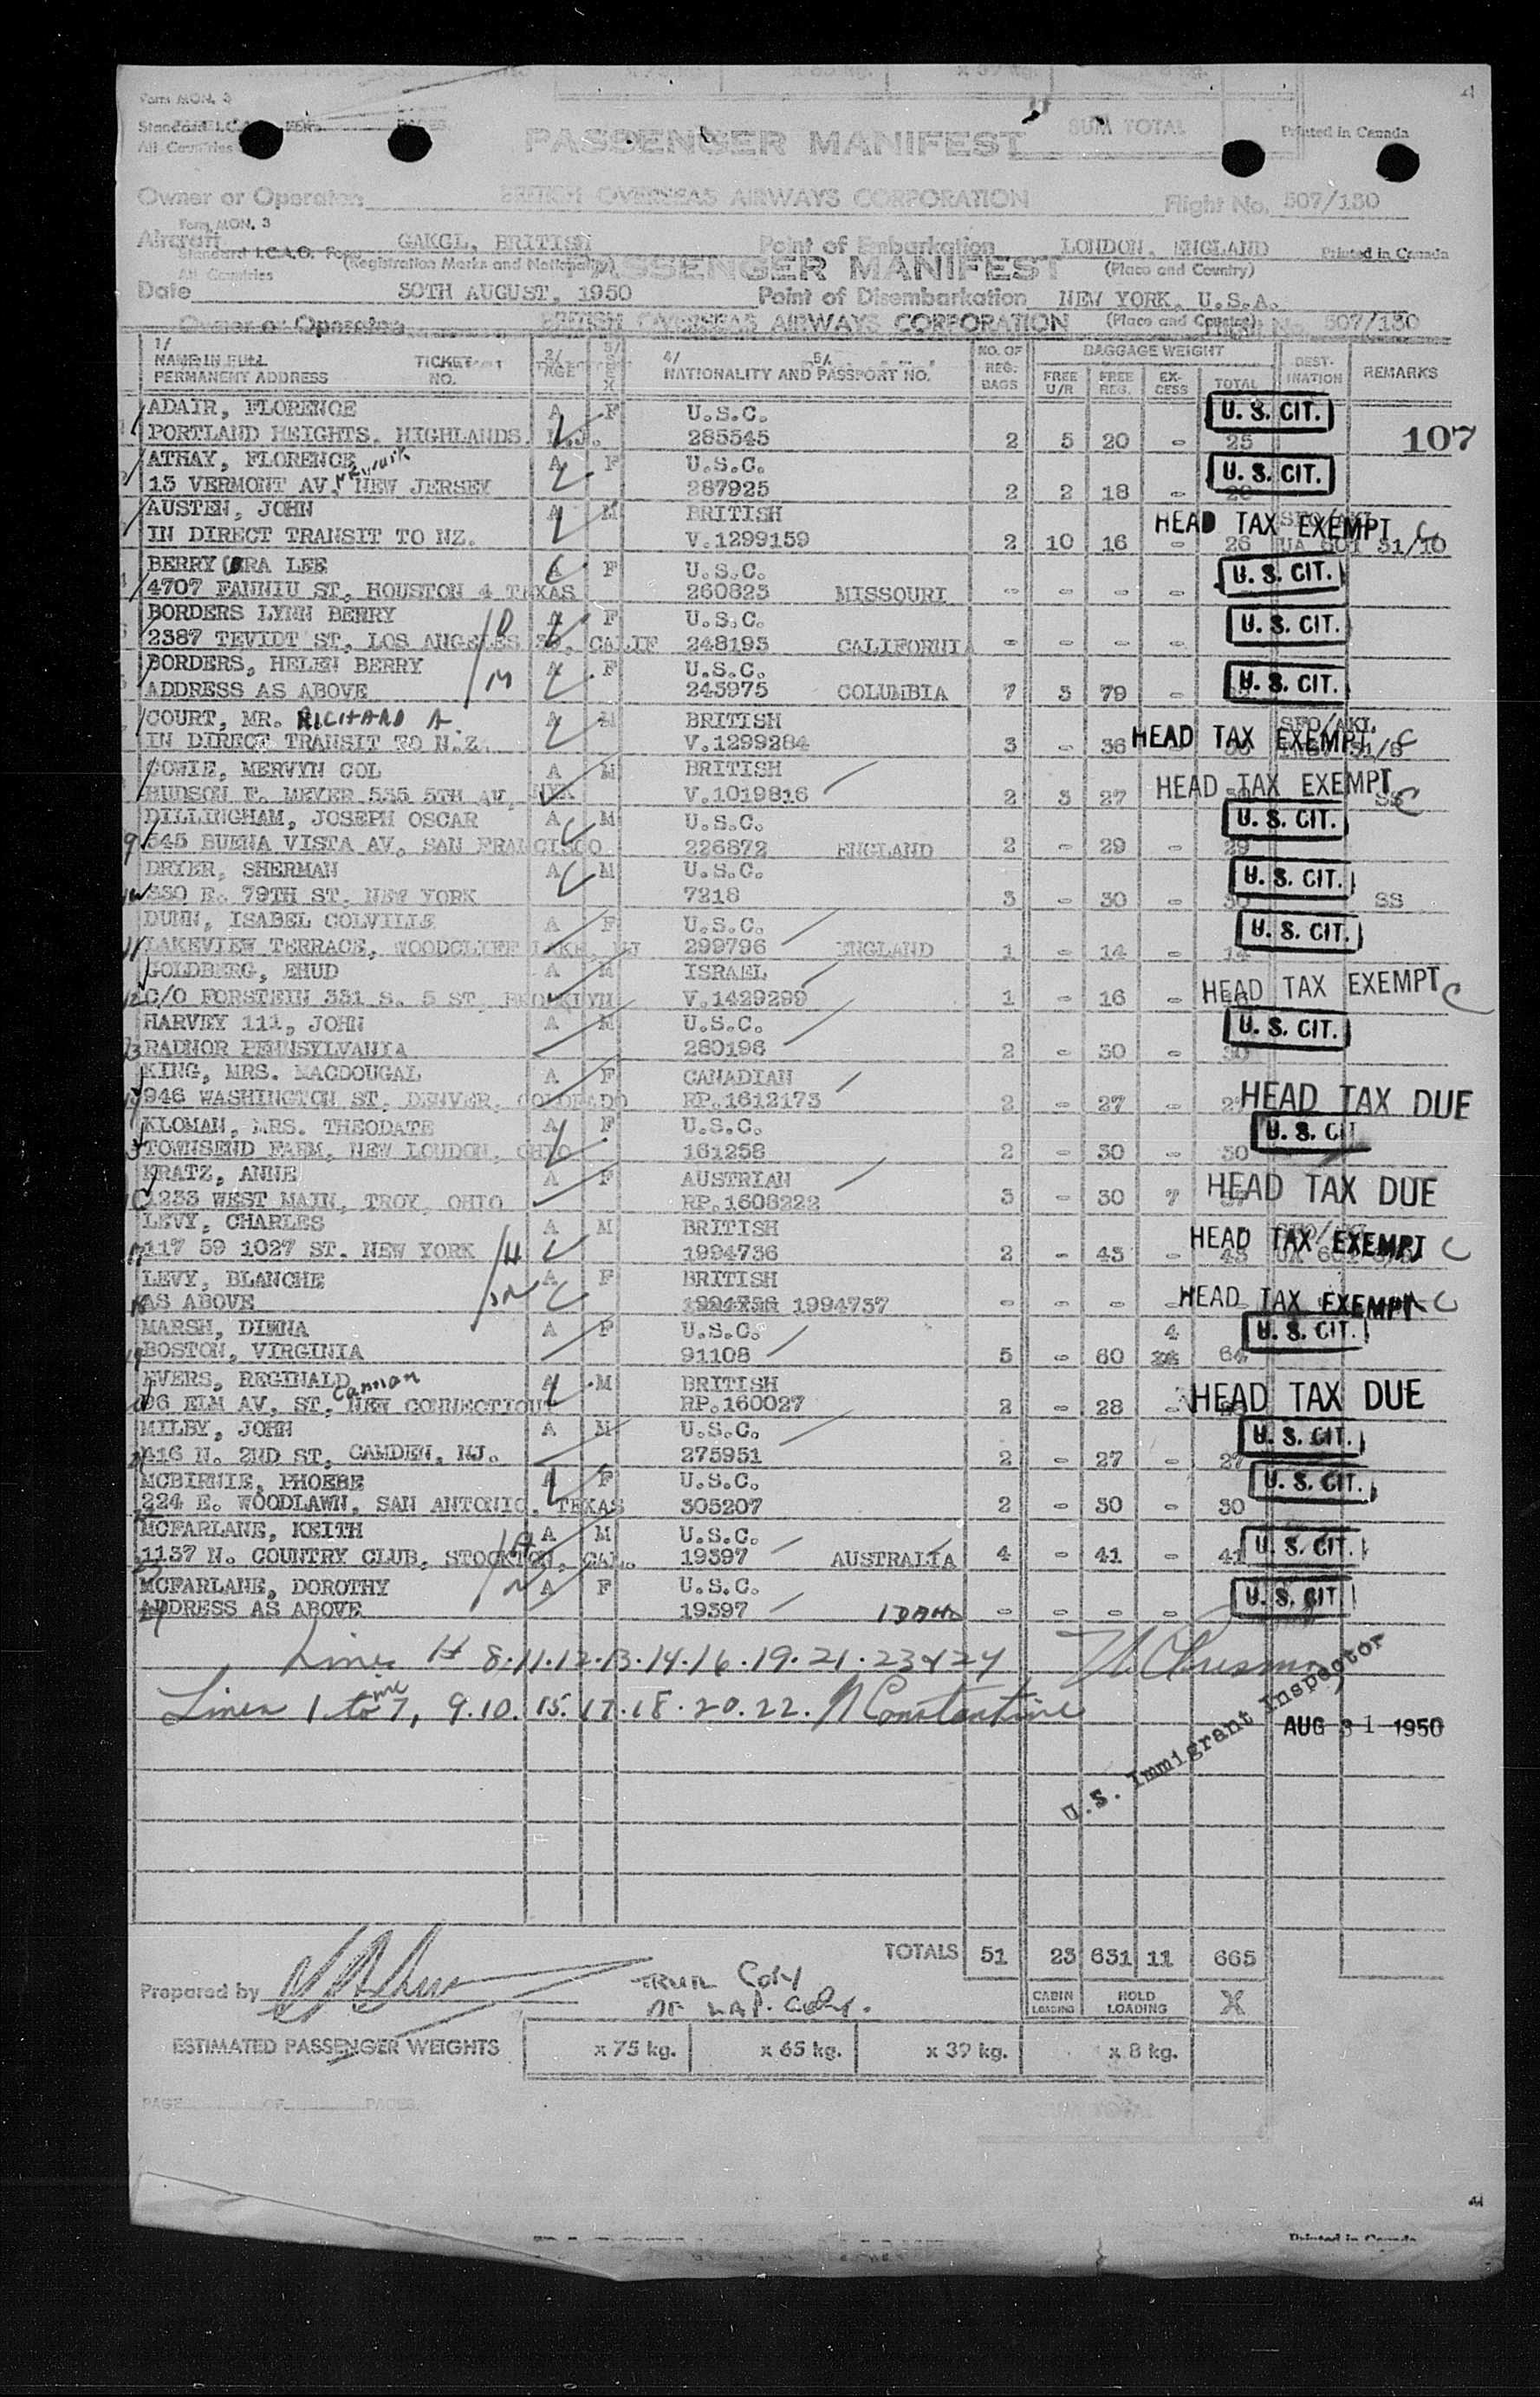 Form MON. 3
Standard I.C.A.O. Form
All Countries
PASSENGER MANIFEST
SUM TOTAL
Printed in Canada
Owner or Operator BRITISH OVERSEAS AIRWAYS CORPORATION Flight No. 507/130
Form MON. 3
Aircraft GAKGL, BRITISH Point of Embarkation LONDON, ENGLAND
Standard I.C.A.O. Form (Registration Marks and Nationality) PASSENGER MANIFEST (Place and Country) Printed in Canada
All Countries
Date 30TH AUGUST, 1950 Point of Disembarkation NEW YORK, U.S.A.
Owner or Operator BRITISH OVERSEAS AIRWAYS CORPORATION (Place and Country) 507/130
1/ NAME IN FULL PERMANENT ADDRESS TICKET NO. 2/ AGE 3/ SEX 4/ NATIONALITY AND 5/ PASSPORT NO. NO. OF REG. BAGS BAGGAGE WEIGHT FREE U/R FREE REG. EX-CESS TOTAL DEST-INATION REMARKS
ADAIR, FLORENCE A F U.S.C. U. S. CIT.
PORTLAND HEIGHTS. HIGHLANDS. N.J. 285545 2 5 20 - 25 107
ATHAY, FLORENCE Newark A F U.S.C. U. S. CIT.
13 VERMONT AV, NEW JERSEY 287925 2 2 18 - 20
AUSTEN, JOHN A M BRITISH HEAD TAX EXEMPT C SFO/AKL
IN DIRECT TRANSIT TO NZ. V.1299159 2 10 16 - 26 UA 601 31/10
BERRY ORA LEE A F U.S.C. U. S. CIT.
4707 FANNIU ST, HOUSTON 4 TEXAS 260823 MISSOURI - - - -
BORDERS LYNN BERRY U.S.C. U. S. CIT.
2387 TEVIDT ST, LOS ANGELES CALIF 248193 CALIFORNIA - - - -
BORDERS, HELEN BERRY A F U.S.C. U. S. CIT.
ADDRESS AS ABOVE 243975 COLUMBIA 7 3 79 -
COURT, MR. RICHARD A. A M BRITISH SFO/AKL
IN DIRECT TRANSIT TO N.Z. V.1299284 3 - 36 HEAD TAX EXEMPT C
COWIE, MERVYN COL A M BRITISH
HUDSON F. MEYER 535 5TH AV, NYK V.1019816 2 3 27 HEAD TAX EXEMPT C SS
DILLINGHAM, JOSEPH OSCAR A M U.S.C. U. S. CIT.
9 545 BUENA VISTA AV, SAN FRANCISCO 226872 ENGLAND 2 - 29 - 29
DRYER, SHERMAN A M U.S.C. U. S. CIT.
10 330 E. 79TH ST, NEW YORK 7218 3 - 30 - 30 SS
DUNN, ISABEL COLVILLE A F U.S.C. U. S. CIT.
11 LAKEVIEW TERRACE, WOODCLIFF LAKE, NJ 299796 ENGLAND 1 - 14 - 14
GOLDBERG, EHUD A M ISRAEL
12 C/O FORSTEIN 331 S. 5 ST, BROOKLYN V.1429299 1 - 16 - HEAD TAX EXEMPT C
HARVEY 111, JOHN A M U.S.C. U. S. CIT.
13 RADNOR PENNSYLVANIA 280196 2 - 30 - 30
KING, MRS. MACDOUGAL A F CANADIAN
14 946 WASHINGTON ST, DENVER, COLORADO RP.1612173 2 - 27 - 27 HEAD TAX DUE
KLOMAN, MRS. THEODATE A F U.S.C. U. S. CIT
15 TOWNSEND FARM, NEW LOUDON, OHIO 161258 2 - 30 - 30
KRATZ, ANNE A F AUSTRIAN
16 1233 WEST MAIN, TROY, OHIO RP.1608222 3 - 30 7 37 HEAD TAX DUE
LEVY, CHARLES A M BRITISH
17 117 59 1027 ST. NEW YORK /H 1994736 2 - 43 - 43 HEAD TAX EXEMPT C
LEVY, BLANCHE A F BRITISH
18 AS ABOVE 1994737 - - - - HEAD TAX EXEMPT C
MARSH, DIENA A F U.S.C. 4 U. S. CIT.
19 BOSTON, VIRGINIA 91108 5 - 60 64
MYERS, REGINALD Cannan A M BRITISH
96 ELM AV, ST, NEW CONNECTICUT RP.160027 2 - 28 - HEAD TAX DUE
MILBY, JOHN A M U.S.C. U. S. CIT.
21 416 N. 2ND ST, CAMDEN, NJ. 275951 2 - 27 - 27
MCBIRNIE, PHOEBE A F U.S.C. U. S. CIT.
224 E. WOODLAWN, SAN ANTONIO, TEXAS 305207 2 - 30 - 30
MCFARLANE, KEITH A M U.S.C.
23 1137 N. COUNTRY CLUB, STOCKTON, CAL. 19397 AUSTRALIA 4 - 41 - 41 U. S. CIT.
MCFARLANE, DOROTHY A F U.S.C. U. S. CIT
24 ADDRESS AS ABOVE 19397 IDAHO - - - -
Lines 8. 11. 12. 13. 14. 16. 19. 21. 23 & 24
Lines 1 to 7, 9. 10. 15. 17. 18. 20. 22. Constantine
U.S. Immigrant Inspector
AUG 31 1950
TOTALS 51 23 631 11 665
Prepared by
TRUE COPY
OF
CABIN LOADING HOLD LOADING X
ESTIMATED PASSENGER WEIGHTS x 75 kg. x 65 kg. x 39 kg. x 8 kg.
PAGE OF PAGES
Printed in Canada